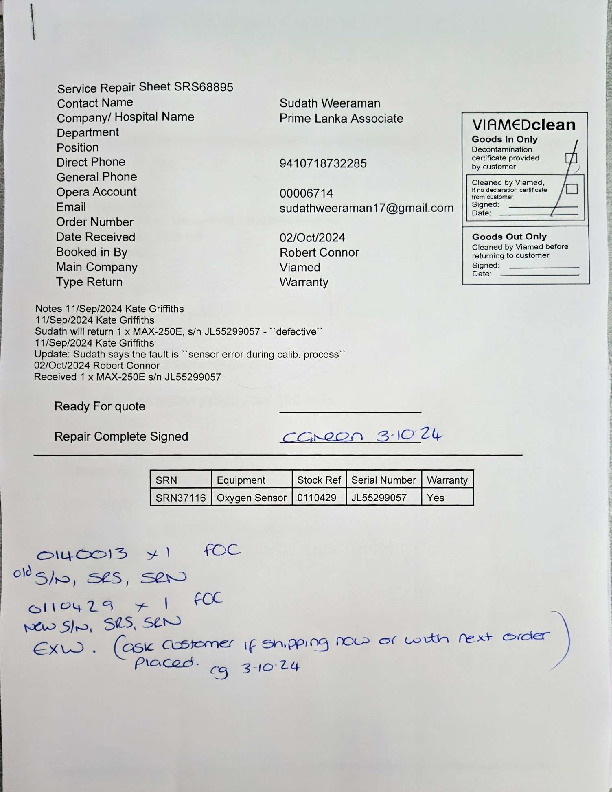 Service Repair Sheet SRS68895
Contact Name Sudath Weeraman
Company/ Hospital Name Prime Lanka Associate
Department
Position
Direct Phone 9410718732285
General Phone
Opera Account 00006714
Email sudathweeraman17@gmail.com
Order Number
Date Received 02/Oct/2024
Booked in By Robert Connor
Main Company Viamed
Type Return Warranty
VIAMEDclean
Goods In Only
Decontamination
certificate provided
by customer
Cleaned by Viamed,
if no declaration certificate
from customer
Signed:
Date:
Goods Out Only
Cleaned by Viamed before
returning to customer
Signed:
Date:
Notes 11/Sep/2024 Kate Griffiths
11/Sep/2024 Kate Griffiths
Sudath will return 1 x MAX-250E, s/n JL55299057 - ``defective``
11/Sep/2024 Kate Griffiths
Update: Sudath says the fault is ``sensor error during calib. process``
02/Oct/2024 Robert Connor
Received 1 x MAX-250E s/n JL55299057
Ready For quote
Repair Complete Signed 3-10-24
SRN Equipment Stock Ref Serial Number Warranty
SRN37116 Oxygen Sensor 0110429 JL55299057 Yes
0140013 x 1 FOC
old S/N, SRS, SRN
0110429 x 1 FOC
New S/N, SRS, SRN
EXW. (ask customer if shipping now or with next order
placed. cg 3-10-24 )